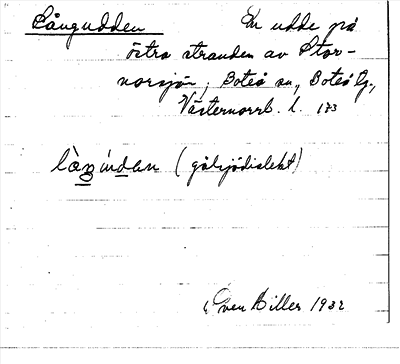 Långudden En udde på
östra stranden av Stor-
norsjön, Boteå sn, Boteå tg.,
Västernorrl. l. 173
(gålsjödialekt)
Sven Biller 1932